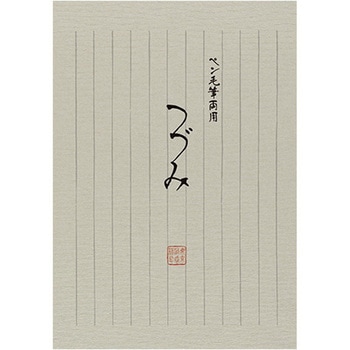 ペン毛筆両用
つづみ